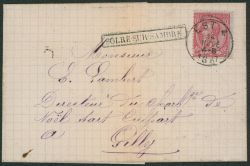 SOLRE-SUR-SAMBRE
Monsieur
E. Lambert
Directeur du Charb.ge de
Noël Sart Culpart
a
Gilly